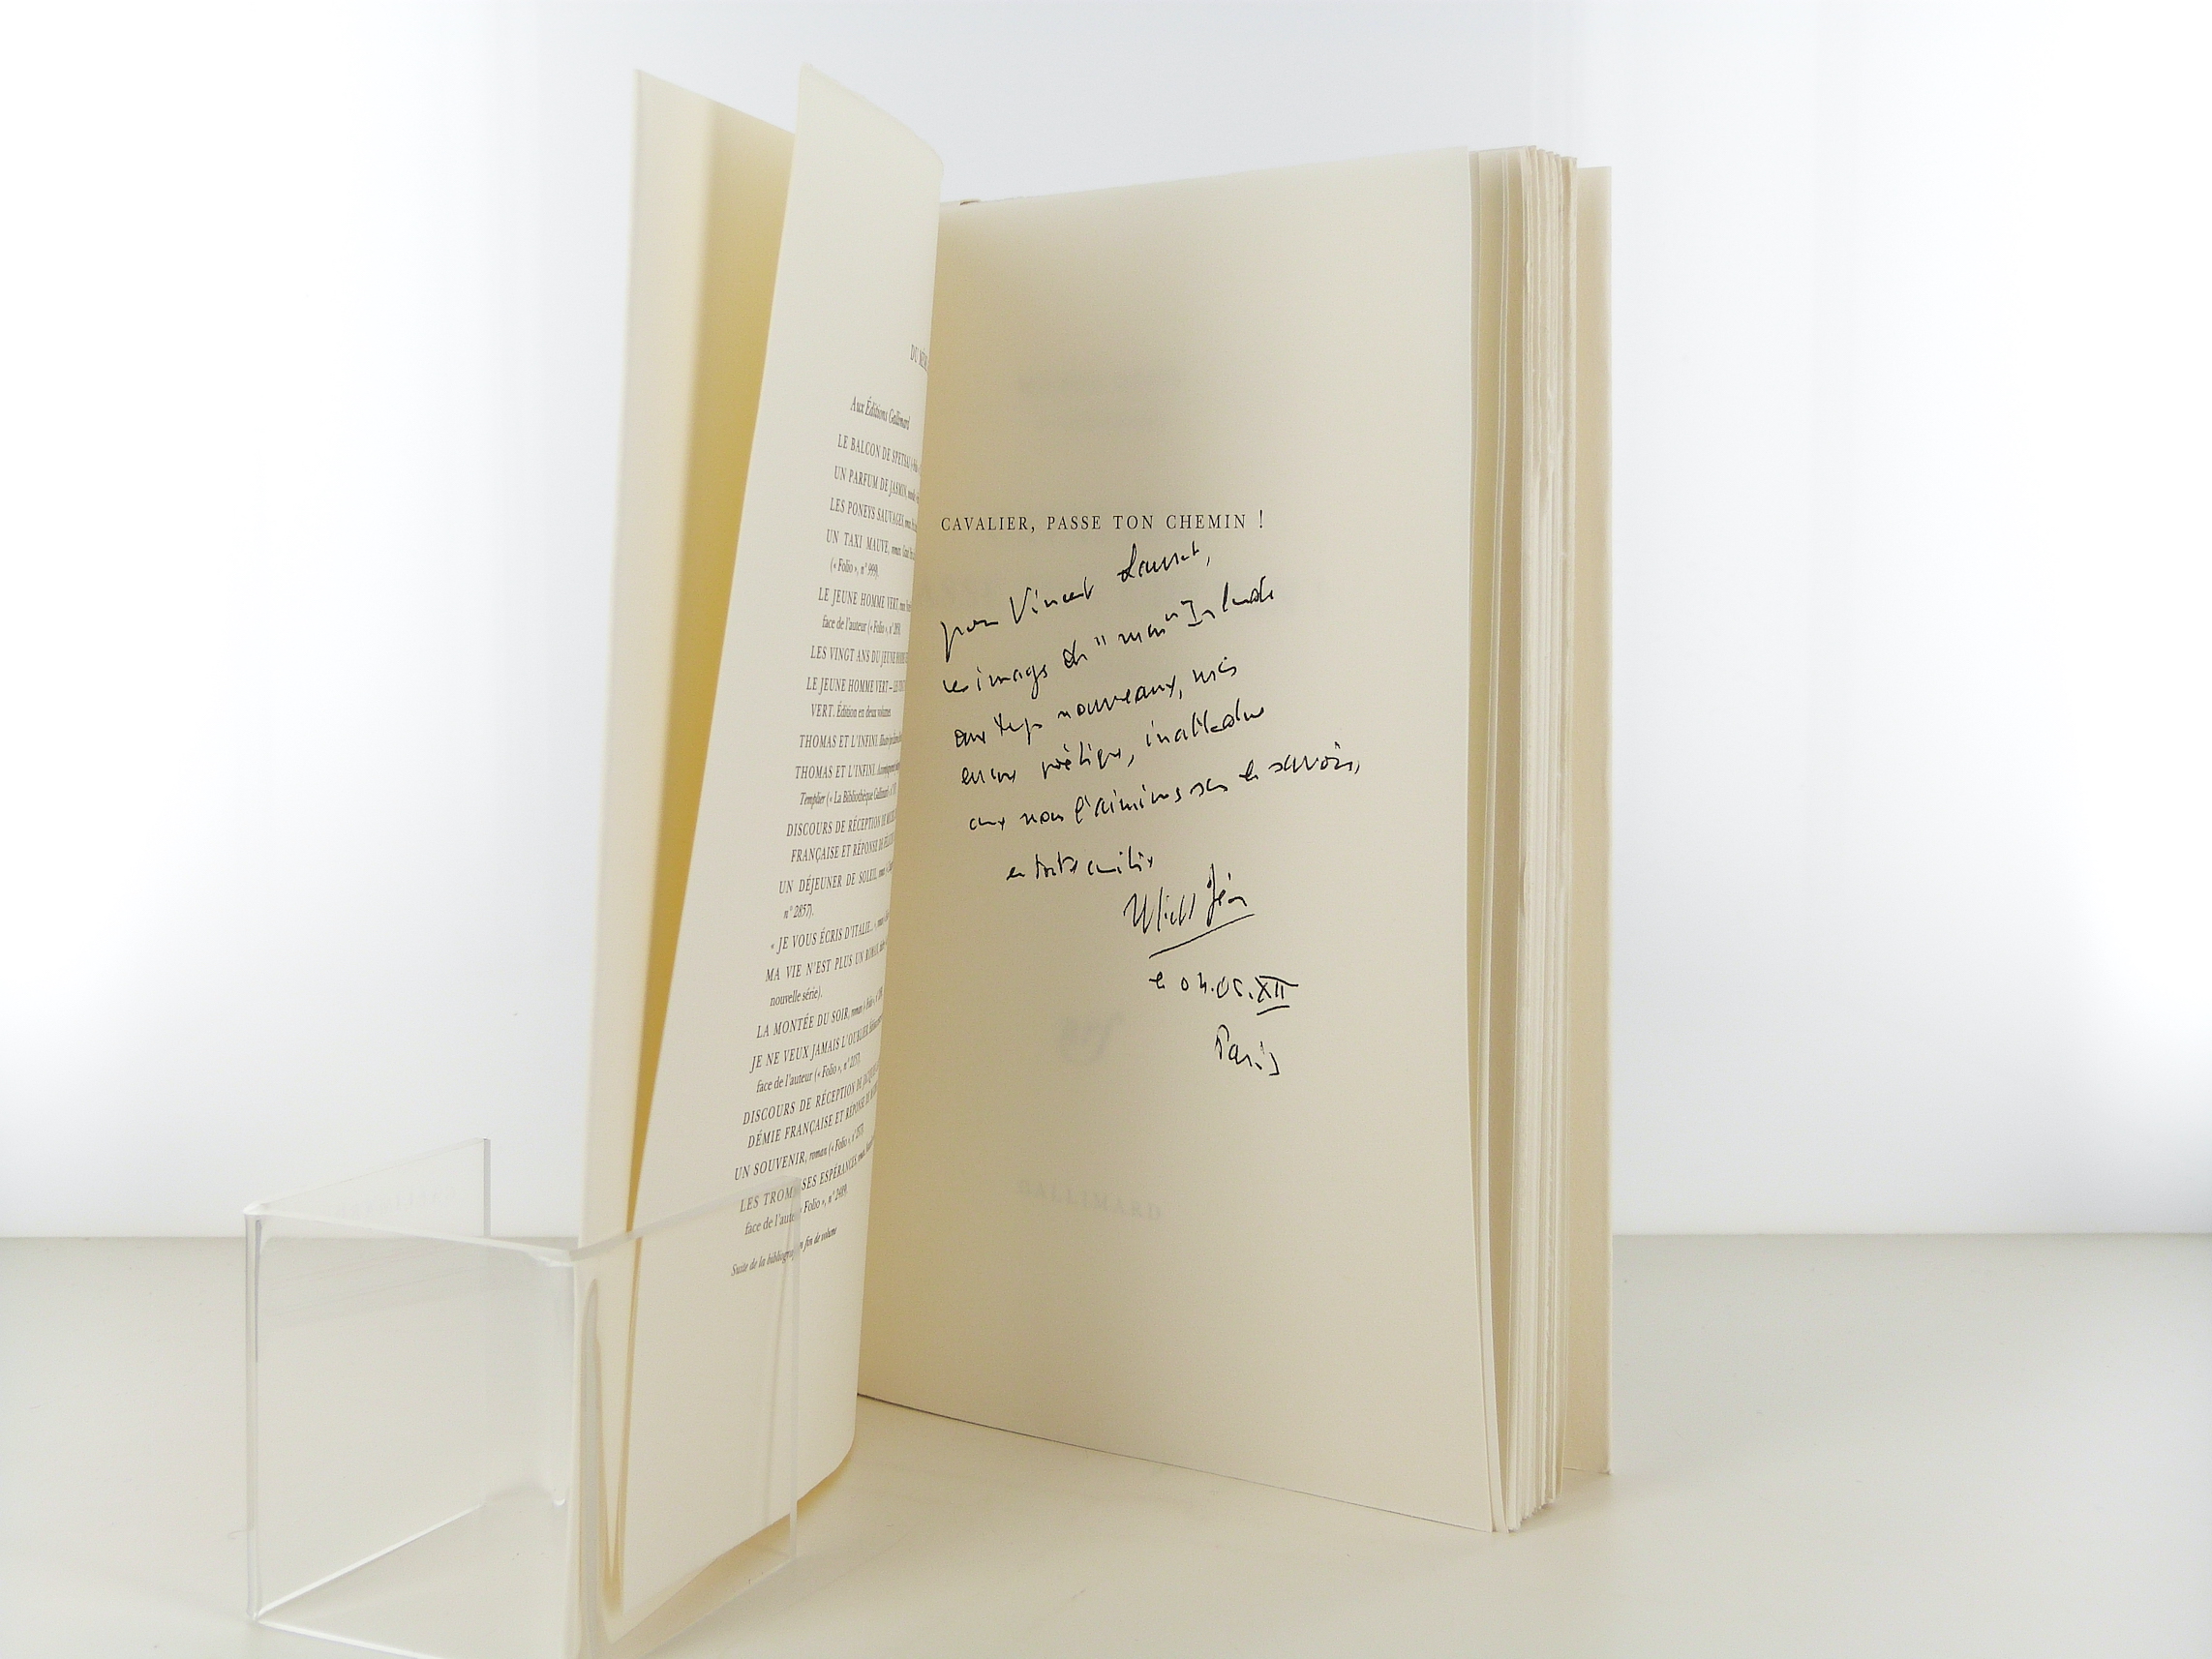 DU MÊM
Aux Éditions Gallimard
LE BALCON DE SPETSAI
UN PARFUM DE JASMIN,
LES PONEYS SAUVAGES,
UN TAXI MAUVE, roman
(« Folio », n° 999).
LE JEUNE HOMME VERT,
face de l'auteur (« Folio »,
LES VINGT ANS DU JEUNE HOMME
LE JEUNE HOMME VERT –
VERT. Édition en deux volumes
THOMAS ET L'INFINI.
THOMAS ET L'INFINI.
Templier (« La Bibliothèque Gallimard »
DISCOURS DE RÉCEPTION DE
FRANÇAISE ET RÉPONSE DE
UN DÉJEUNER DE SOLEIL,
n° 2857).
« JE VOUS ÉCRIS D'ITALIE... »,
MA VIE N'EST PLUS UN ROMAN,
nouvelle série).
LA MONTÉE DU SOIR, roman
JE NE VEUX JAMAIS L'OUBLIER.
face de l'auteur (« Folio », n°
DISCOURS DE RÉCEPTION DE
DÉMIE FRANÇAISE ET RÉPONSE DE
UN SOUVENIR, roman (« Folio »,
LES TROMPEUSES ESPÉRANCES,
face de l'auteur « Folio », n° 2489.
Suite de la bibliographie en fin de volume
CAVALIER, PASSE TON CHEMIN !
pour Vincent
les images de "mon" Irlande
aux temps nouveaux, mais
encore poétique, inattendue
nous l'aimions sans le savoir,
en toute amitié
Michel Déon
le 04.05.XII
Paris
GALLIMARD